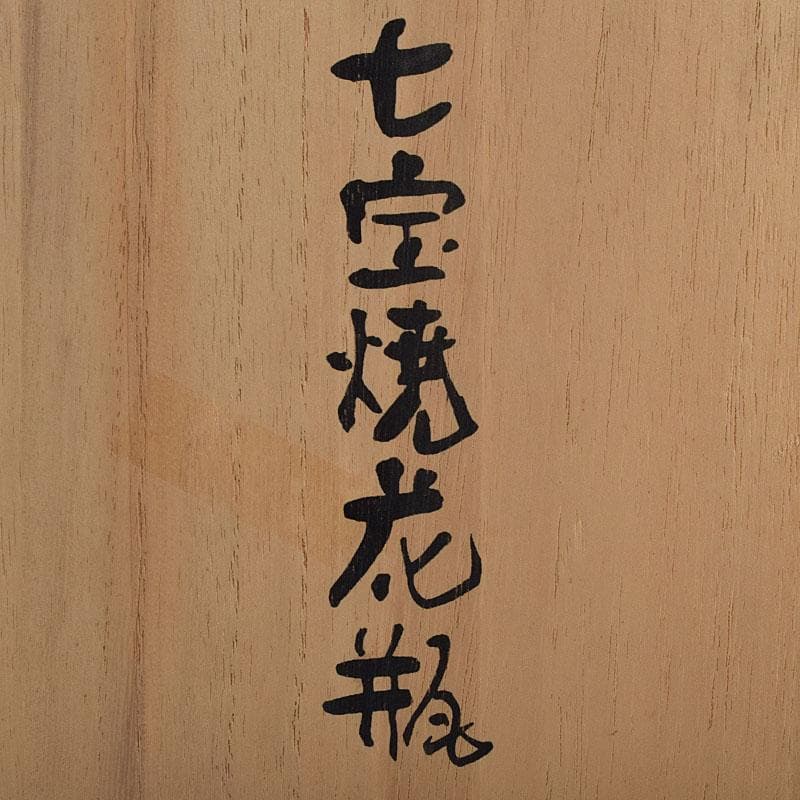 七宝焼花瓶